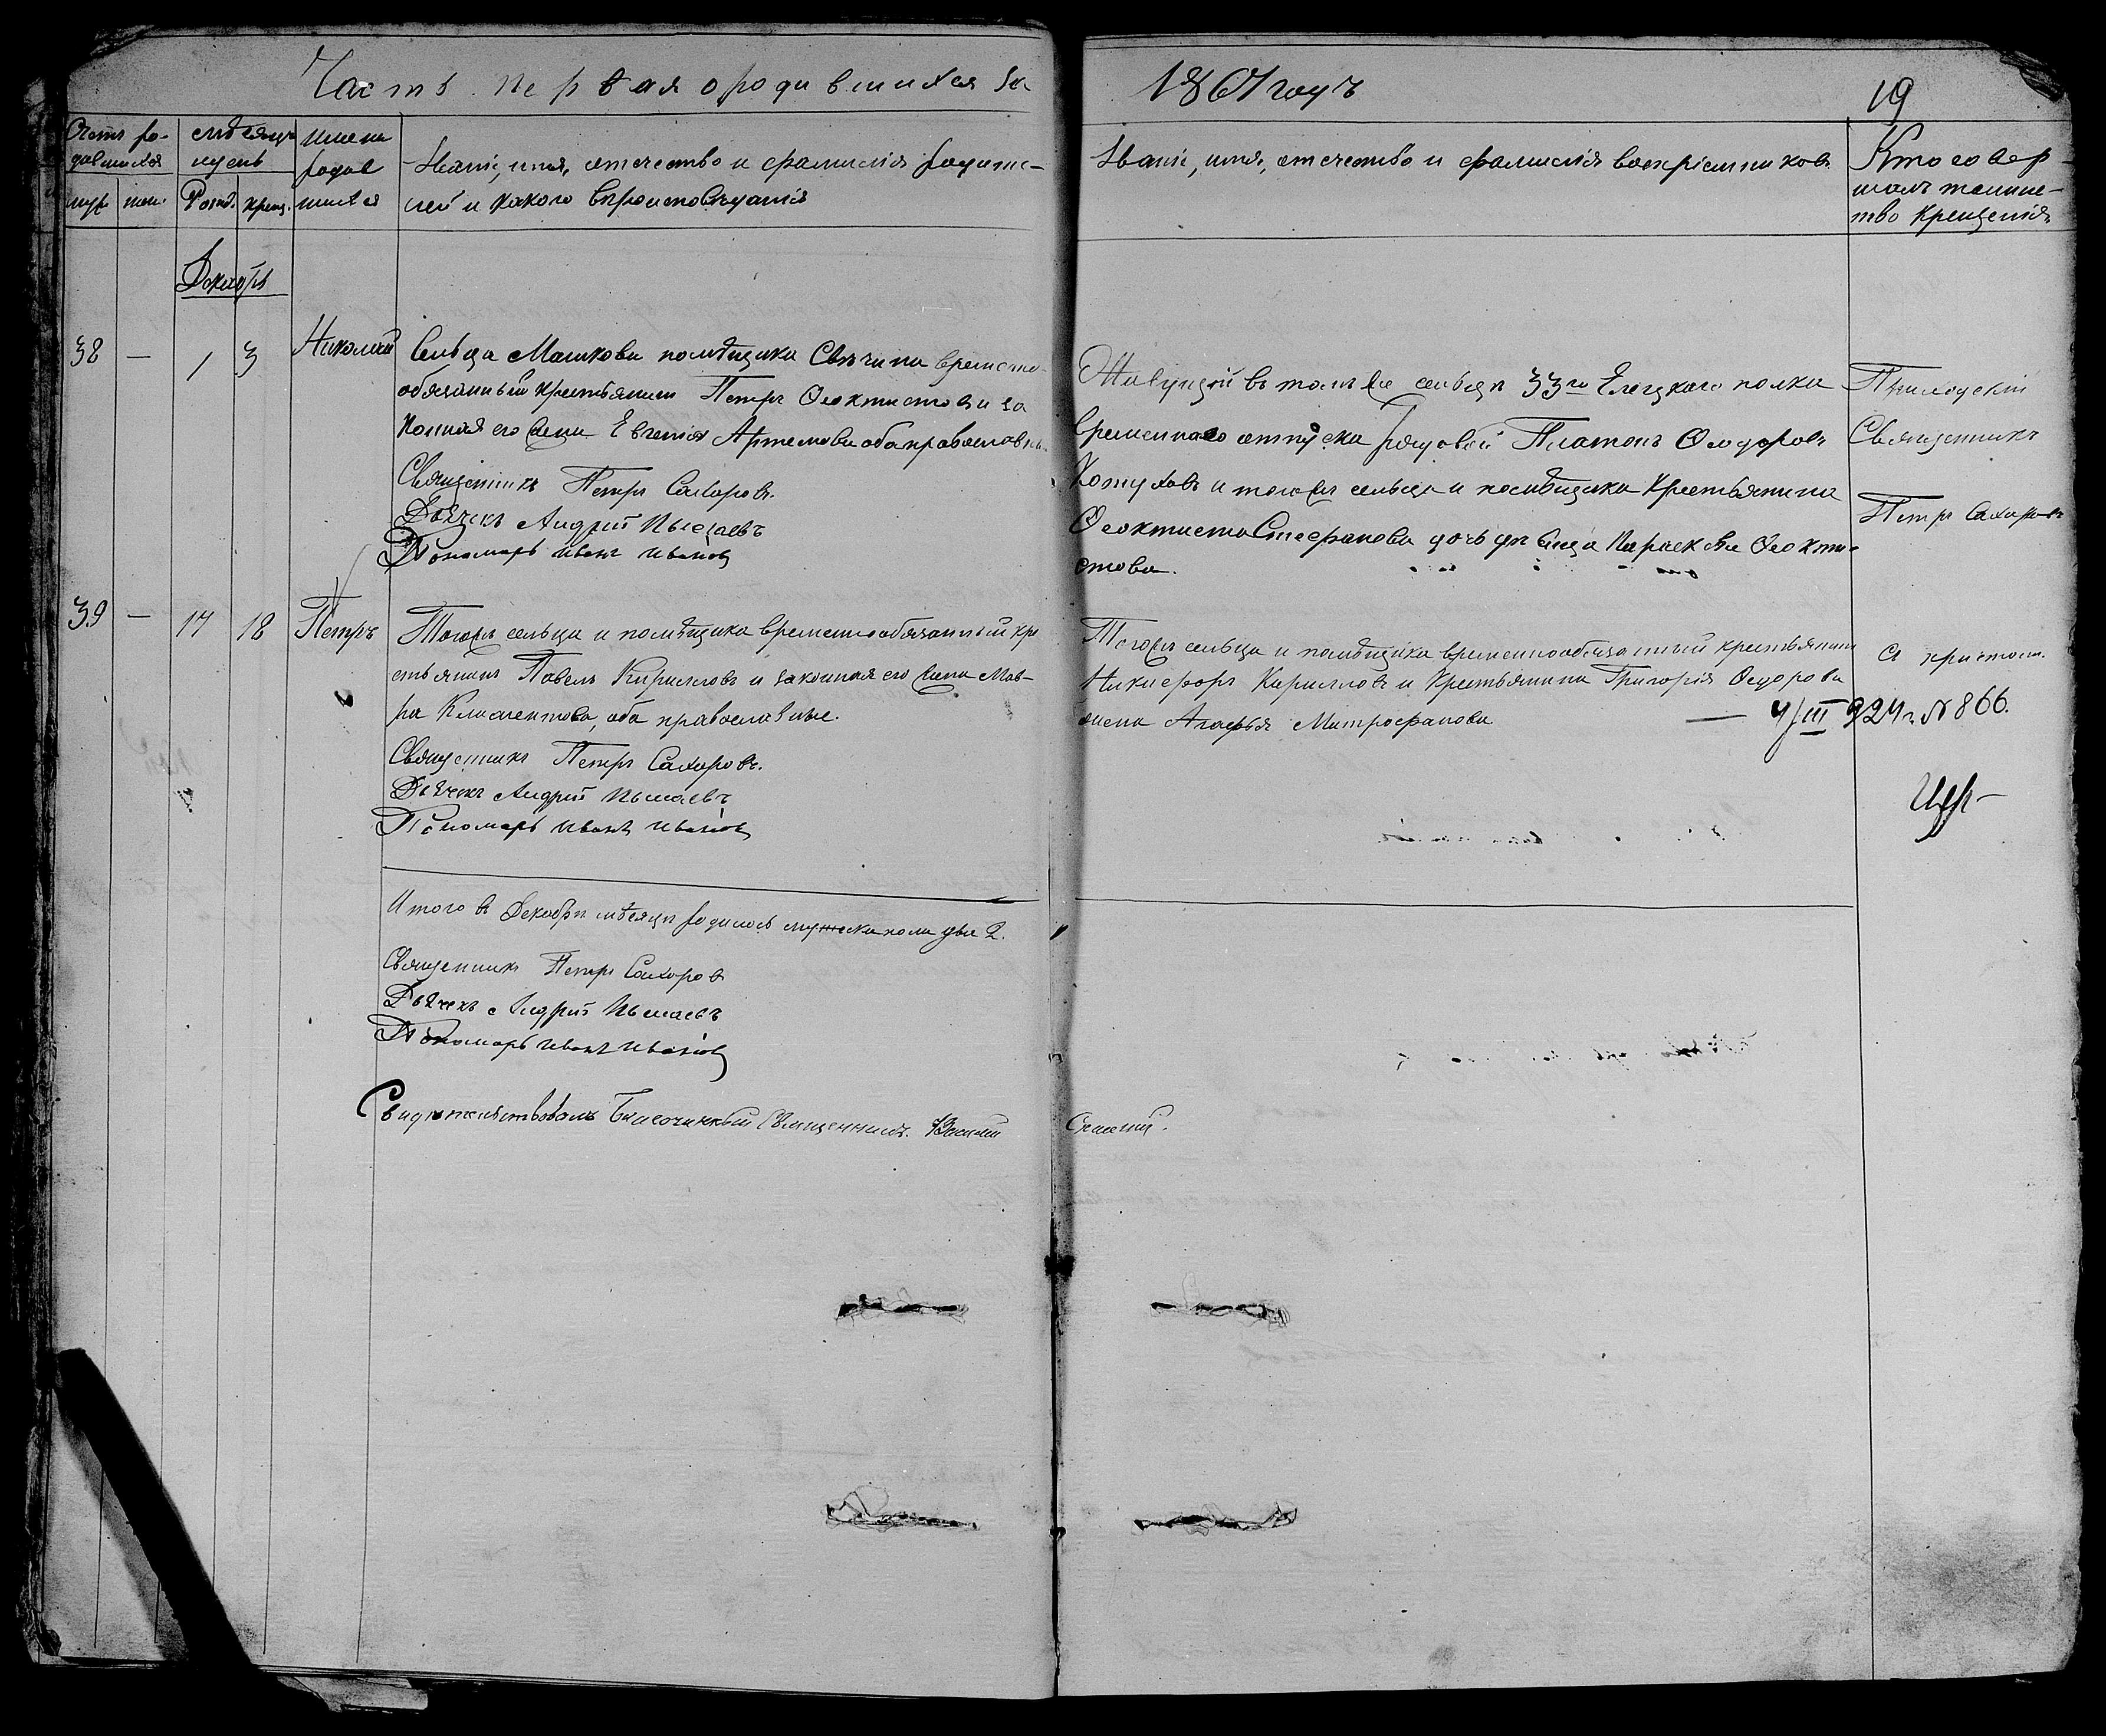 Часть первая о родившихся за 1867 годъ
19
Счетъ ро-
дившихся
муж. жен.
Мѣсяцъ и день
Рожд. крещ.
Имена родившихся
Званіе, имя, отечество и фамилія родите-
лей и какого вѣроисповѣданія
Званіе, имя, отечество и фамилія воспріемниковъ
Кто совер-
шалъ таинс-
тво крещенія
Декабрь
38 — 1 3 Николай
Сельца Машкова помѣщика Свѣчина временно-
обязанный крестьянинъ Петръ Феоктистовъ и за
конная его жена Евгенія Артемова оба православн.
Священникъ Петръ Сахаровъ.
Дьячекъ Андрей
Пономарь Иванъ Ивановъ
Живущій въ томъ же сельцѣ 33го Елецкаго полка
временнаго отпуска рядовой Платонъ Феодоровъ
и тогожъ сельца и помѣщика крестьянина
Феоктиста Стефанова дочь дѣвица Параскева Феокти-
стова.
Приходскій
Священникъ
Петръ Сахаровъ
39 — 17 18 Петръ
Тогожъ сельца и помѣщика временнообязанный кре
стьянинъ Павелъ Кирилловъ и законная его жена Мав-
ра Климентова, оба православные.
Священникъ Петръ Сахаровъ.
Дьячекъ Андрей
Пономарь Иванъ Ивановъ
Тогожъ сельца и помѣщика временнообязанный крестьянинъ
Никифоръ Кирилловъ и крестьянина Григорія Федорова
жена Агафья Митрофанова
— 4/III 924 г. № 866.
Итого въ Декабрѣ мѣсяцѣ родилось мужеска пола два 2.
Священникъ Петръ Сахаровъ
Дьячекъ Андрей
Пономарь Иванъ Ивановъ
Свидѣтельствовалъ Благочинный Священникъ Василій